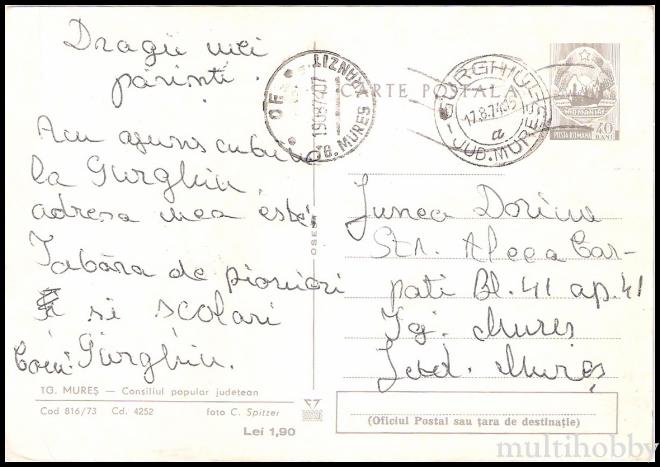 Dragii mei
părinți.
Am ajuns cu bine
la Gurghiu
adresa mea este:
Tabăra de pionieri
și si scolari
Com: Gurghiu.
TG. MUREȘ — Consiliul popular județean
Cod 816/73 Cd. 4252 foto C. Spitzer
Lei 1,90
CARTE POSTALA
OF. TRANZIT
19087407
TG. MUREȘ
GURGHIU
17.8.74
a
JUD. MUREȘ
POSTA ROMANA
40
BANI
Junea Dorina
Str. Aleea Car-
pati Bl. 41 ap. 41
Tg. Mureș
Jud. Mureș
(Oficiul Postal sau țara de destinație)
multihobby